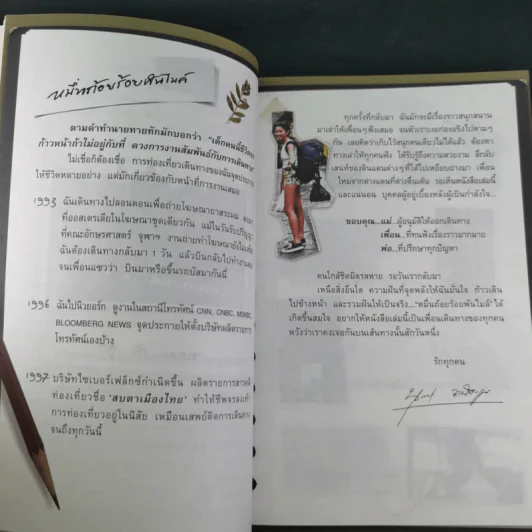 หมื่นถ้อยร้อยพันไมล์
ตามตำทำนายทายทักมักบอกว่า "เด็กคนนี้ชีวิต
ก้าวหน้าถ้าไม่อยู่กับที่ ดวงการงานสัมพันธ์กับการเดินทาง
ไม่เชื่อก็ต้องเชื่อ การท่องเที่ยวเดินทางของฉันจุดประกาย
ให้ชีวิตหลายอย่าง แต่มักเกี่ยวข้องกับหน้าที่การงานเสมอ
1993 ฉันเดินทางไปลอนดอนเพื่อถ่ายโฆษณายาสระผม
ที่ออสเตรเลียในโฆษณาชุดเดียวกัน แม้ในวันรับปริญญา
ที่คณะอักษรศาสตร์ จุฬาฯ งานถ่ายทำโฆษณายังไม่
ฉันต้องเดินทางกลับมา 1 วัน แล้วบินกลับไปทำงาน
จนเพื่อนแซวว่า บินมาหรือขึ้นรถบัสมากันนี่
1996 ฉันไปนิวยอร์ก ดูงานในสถานีโทรทัศน์ CNN, CNBC, MSNBC
BLOOMBERG NEWS จุดประกายให้ตั้งบริษัทผลิตรายการ
โทรทัศน์เองบ้าง
1997 บริษัทไซเบอร์เฟล็กซ์กำเนิดขึ้น ผลิตรายการสารคดี
ท่องเที่ยวชื่อ 'สบตาเมืองไทย' ทำให้ชีพจรลงเท้า
การท่องเที่ยวอยู่ในนิสัย เหมือนเสพย์ติดการเดินทาง
จนถึงทุกวันนี้
ทุกครั้งที่กลับมา ฉันมักจะมีเรื่องราวสนุกสนาน
มาเล่าให้เพื่อนๆ ฟังเสมอ จนตัวเราจะงอก่องอขิงไปตามๆ
กัน เลยคิดว่าเก็บไว้สนุกคนเดียวไม่ได้แล้ว ต้องหา
ทางเล่าให้ทุกคนฟัง ให้รับรู้ถึงความสวยงาม ลึกลับ
เสน่ห์ของดินแดนต่างๆ ที่ได้ไปเหยียบย่างมา เพื่อน
ใหม่จากต่างแดนที่ต่างตื่นเต้น รอเห็นหนังสือเล่มนี้
และแน่นอน บุคคลผู้อยู่เบื้องหลังผู้เป็นกำลังใจ...
ขอบคุณ...แม่..ผู้อนุมัติให้ออกเดินทาง
เพื่อน...ที่ทนฟังเรื่องราวมากมาย
พ่อ...ที่ปรึกษาทุกปัญหา
คนใกล้ชิดมิตรสหาย รอวันเรากลับมา
เหนือสิ่งอื่นใด ความฝันที่จุดพลังให้ฉันมั่นใจ ก้าวเดิน
ไปข้างหน้า และรวมฝันให้เป็นจริง..."หมื่นถ้อยร้อยพันไมล์" ได้
เกิดขึ้นสมใจ อยากให้หนังสือเล่มนี้เป็นเพื่อนเดินทางของทุกคน
หวังว่าเราคงเจอกันบนเส้นทางนั้นสักวันหนึ่ง
รักทุกคน